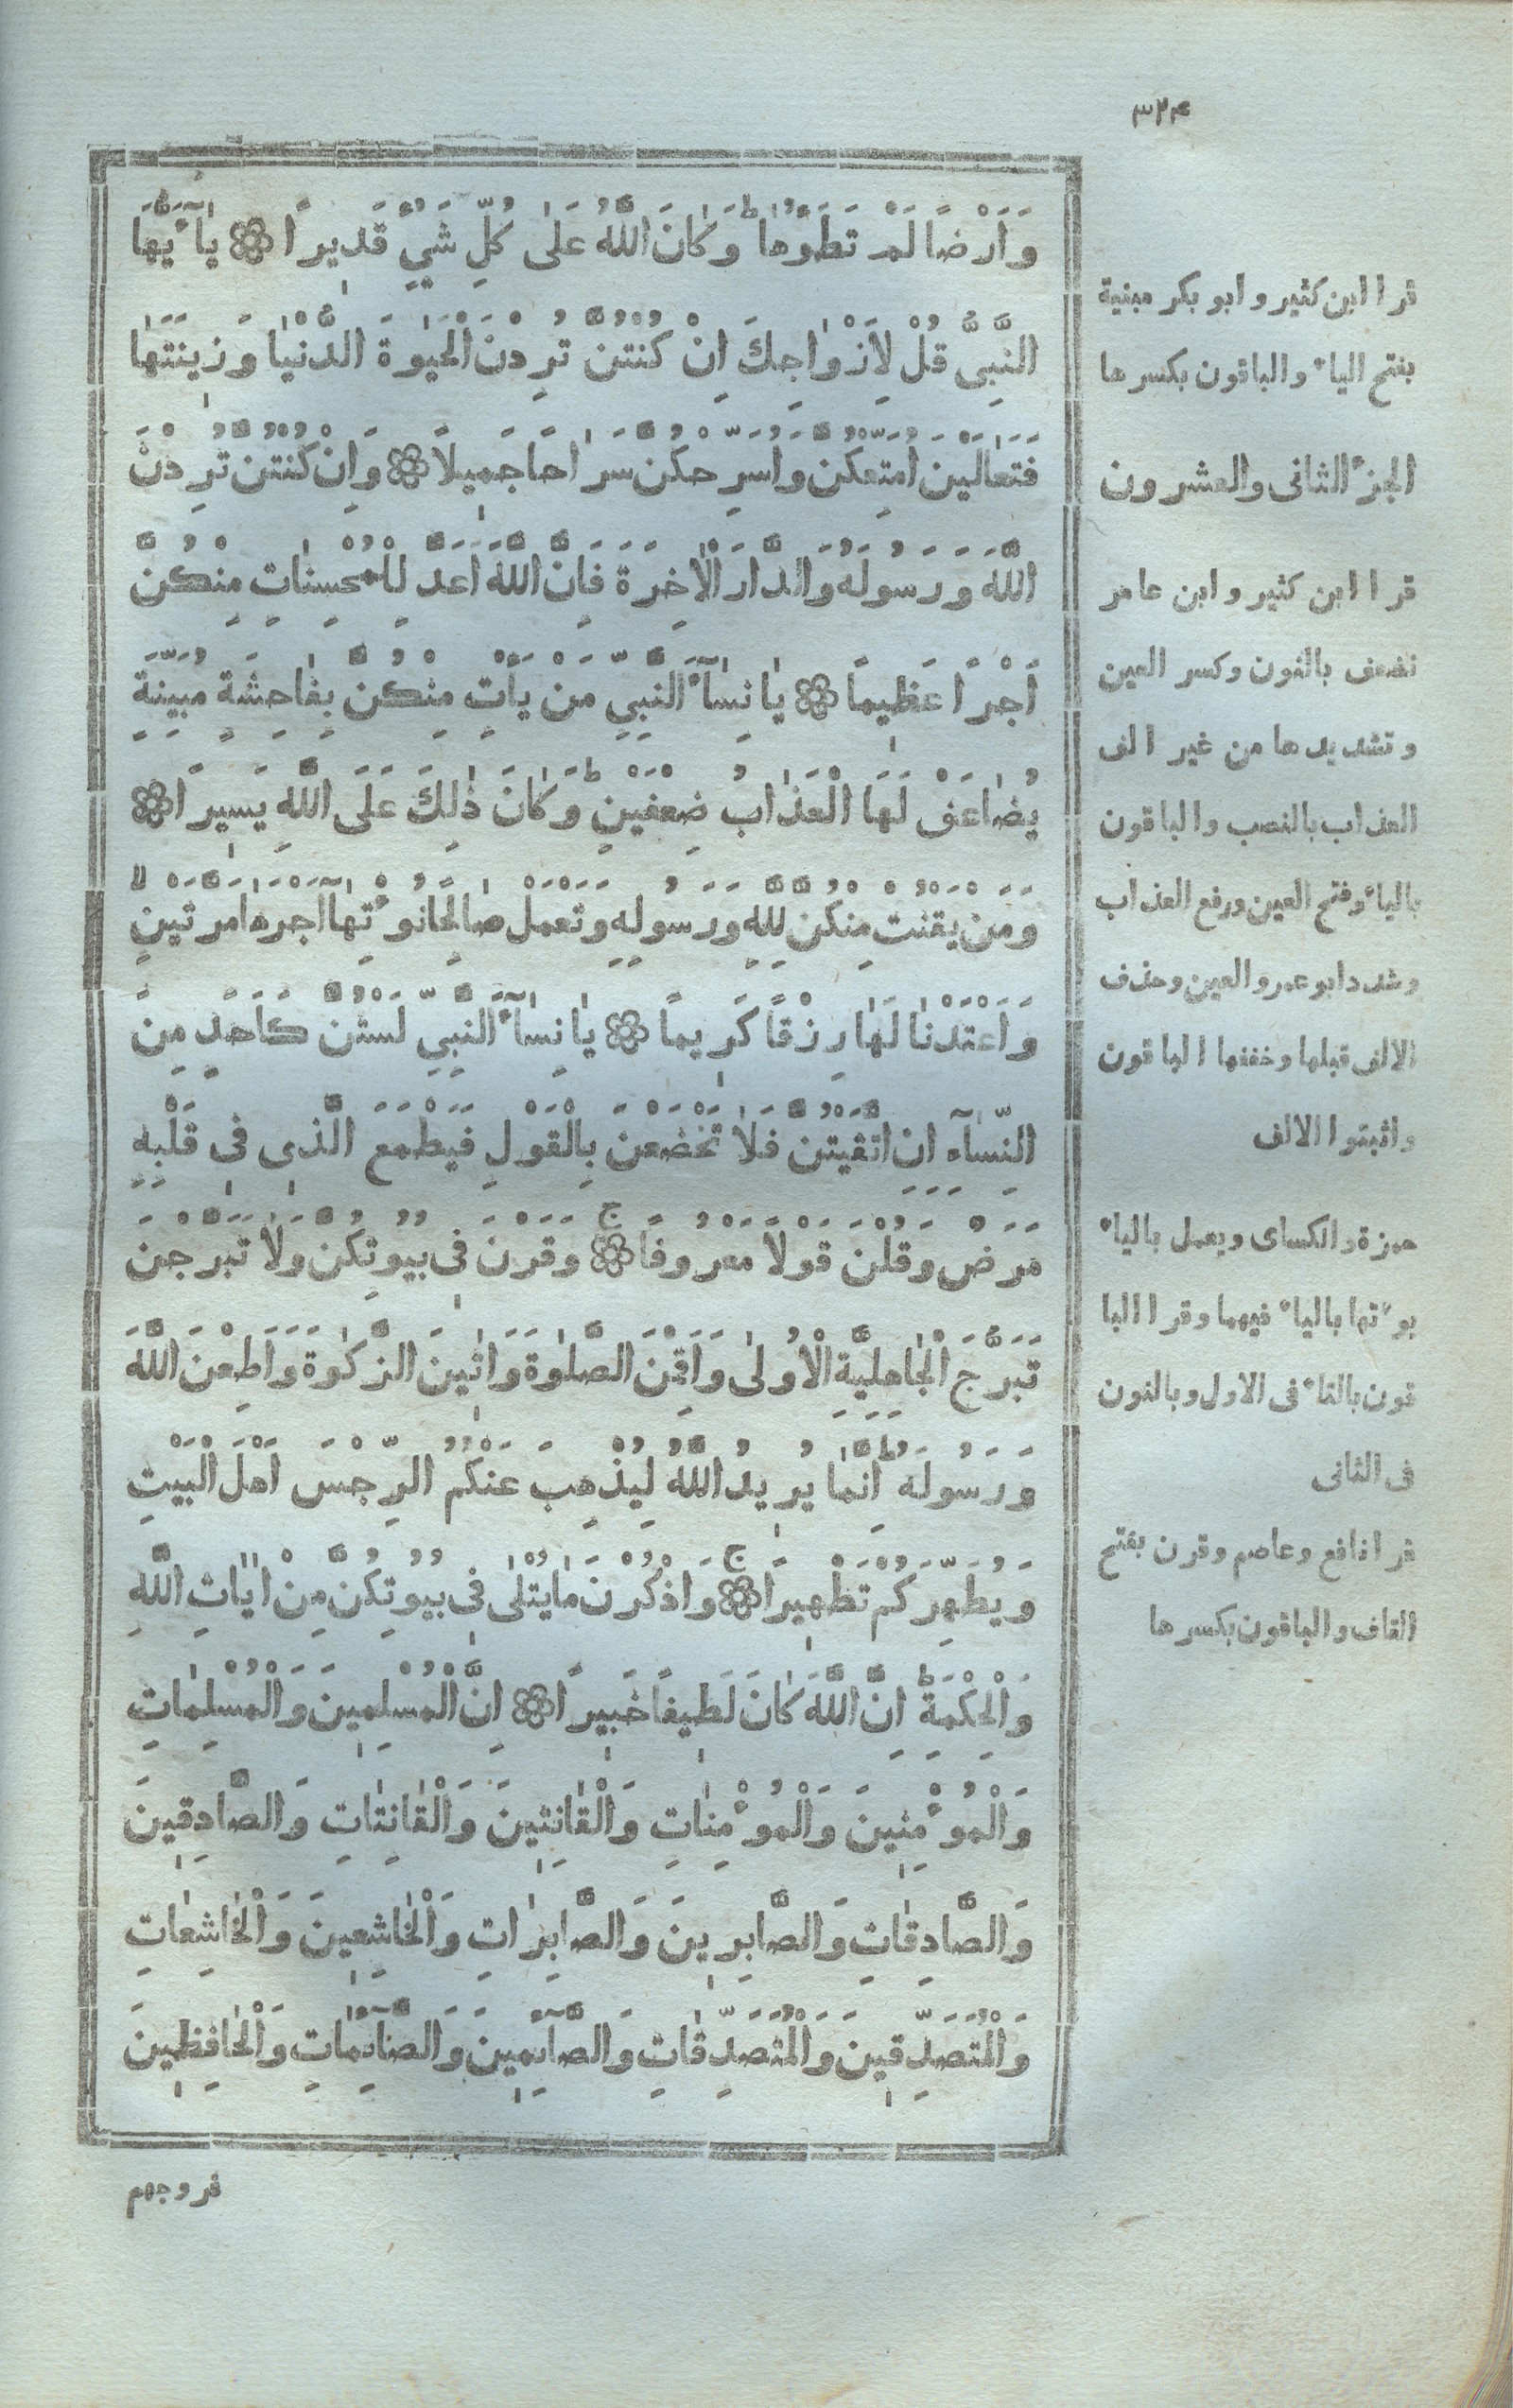 ٣٢۴
وَاَرْضًا لَمْ تَطَؤُهٰا وَكٰانَ اللّٰهُ عَلٰى كُلِّ شَيْءٍ قَدِيرًا يٰآءَيُّهَا
النَّبِىُّ قُلْ لِاَزْوٰاجِكَ اِنْ كُنْتُنَّ تُرِدْنَ الْحَيٰوةَ الدُّنْيٰا وَزِينَتَهٰا
فَتَعٰالَيْنَ اُمَتِّعْكُنَّ وَاُسَرِّحْكُنَّ سَرٰاحًا جَمِيلًا وَاِنْ كُنْتُنَّ تُرِدْنَ
اللّٰهَ وَرَسُولَهُ وَالدَّارَ الْاٰخِرَةَ فَاِنَّ اللّٰهَ اَعَدَّ لِلْمُحْسِنٰاتِ مِنْكُنَّ
اَجْرًا عَظِيمًا يٰا نِسٰآءَ النَّبِيِّ مَنْ يَأْتِ مِنْكُنَّ بِفٰاحِشَةٍ مُبَيِّنَةٍ
يُضٰاعَفْ لَهَا الْعَذٰابُ ضِعْفَيْنِ وَكٰانَ ذٰلِكَ عَلَى اللّٰهِ يَسِيرًا
وَمَنْ يَقْنُتْ مِنْكُنَّ لِلّٰهِ وَرَسُولِهِ وَتَعْمَلْ صٰالِحًا نُوءْتِهٰا اَجْرَهٰا مَرَّتَيْنِ
وَاَعْتَدْنٰا لَهٰا رِزْقًا كَرِيمًا يٰا نِسٰآءَ النَّبِيِّ لَسْتُنَّ كَاَحَدٍ مِنَ
النِّسٰآءِ اِنِ اتَّقَيْتُنَّ فَلٰا تَخْضَعْنَ بِالْقَوْلِ فَيَطْمَعَ الَّذِى فِى قَلْبِهِ
مَرَضٌ وَقُلْنَ قَوْلًا مَعْرُوفًا وَقَرْنَ فِى بُيُوتِكُنَّ وَلٰا تَبَرَّجْنَ
تَبَرُّجَ الْجٰاهِلِيَّةِ الْاُولٰى وَاَقِمْنَ الصَّلٰوةَ وَاٰتِينَ الزَّكٰوةَ وَاَطِعْنَ اللّٰهَ
وَرَسُولَهُ اِنَّمٰا يُرِيدُ اللّٰهُ لِيُذْهِبَ عَنْكُمُ الرِّجْسَ اَهْلَ الْبَيْتِ
وَيُطَهِّرَكُمْ تَطْهِيرًا وَاذْكُرْنَ مٰا يُتْلٰى فِى بُيُوتِكُنَّ مِنْ اٰيٰاتِ اللّٰهِ
وَالْحِكْمَةِ اِنَّ اللّٰهَ كٰانَ لَطِيفًا خَبِيرًا اِنَّ الْمُسْلِمِينَ وَالْمُسْلِمٰاتِ
وَالْمُوءْمِنِينَ وَالْمُوءْمِنٰاتِ وَالْقٰانِتِينَ وَالْقٰانِتٰاتِ وَالصَّادِقِينَ
وَالصَّادِقٰاتِ وَالصَّابِرِينَ وَالصَّابِرٰاتِ وَالْخٰاشِعِينَ وَالْخٰاشِعٰاتِ
وَالْمُتَصَدِّقِينَ وَالْمُتَصَدِّقٰاتِ وَالصَّآئِمِينَ وَالصَّآئِمٰاتِ وَالْحٰافِظِينَ
فروجهم
قرا ابن كثير وابو بكر مبنية
بفتح الياء والباقون بكسرها
الجزء الثانى والعشرون
قرا ابن كثير وابن عامر
نضعف بالنون وكسر العين
وتشديدها من غير الف
العذاب بالنصب والباقون
بالياء وفتح العين ورفع العذاب
وشدد ابو عمرو العين وحذف
الالف قبلها وخففها الباقون
واثبتوا الالف
حمزة والكساى ويعمل بالياء
يوءتها بالياء فيهما وقرا البا
قون بالتاء فى الاول وبالنون
فى الثانى
قرا نافع وعاصم وقرن بفتح
القاف والباقون بكسرها